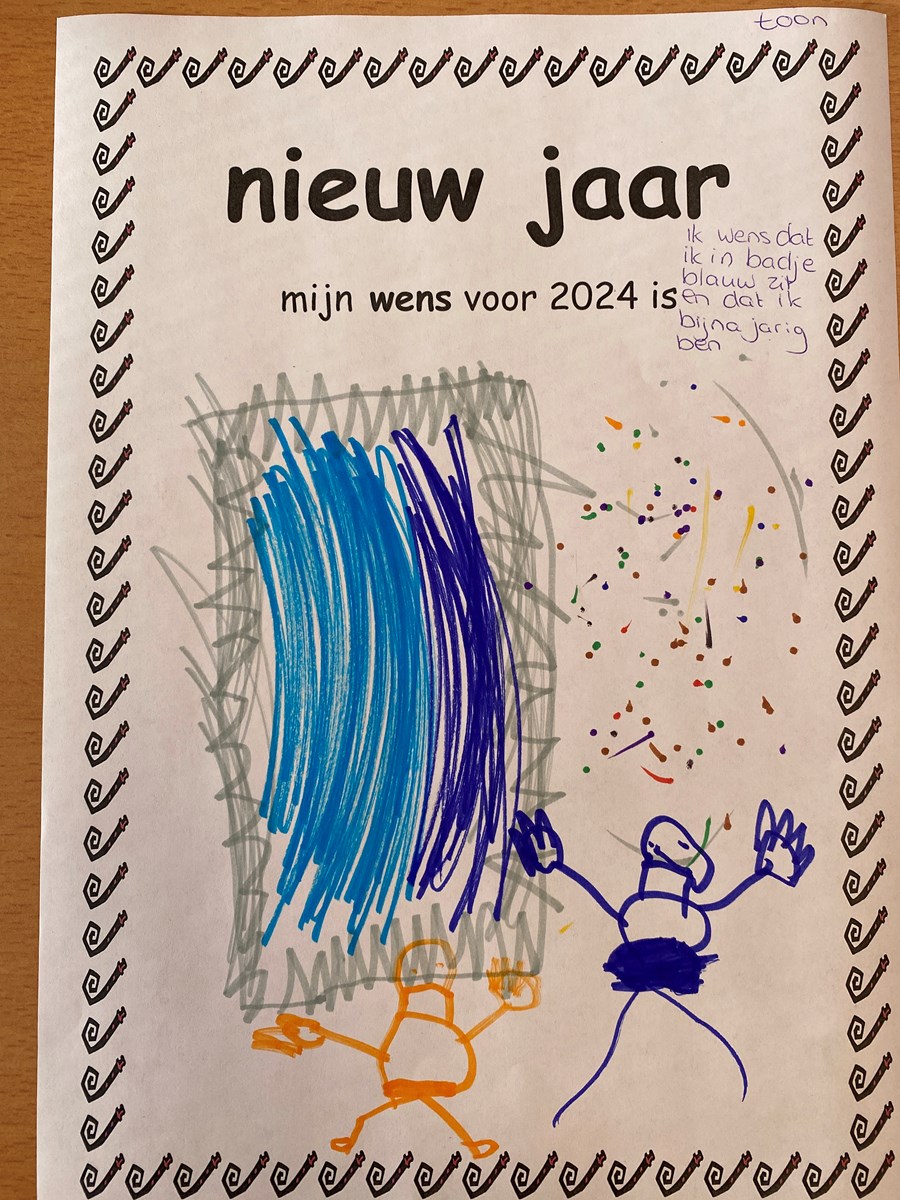 toon
nieuw jaar
mijn wens voor 2024 is
ik wens dat
ik in badje
blauw zit
en dat ik
bijna jarig
ben